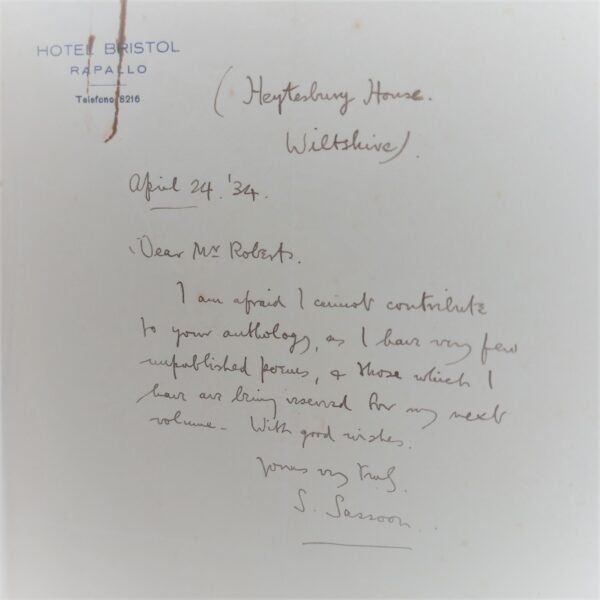 HOTEL BRISTOL
RAPALLO
Telefono 8216
(Heytesbury House.
Wiltshire).
April 24. '34.
Dear Mr Roberts.
I am afraid I cannot contribute
to your anthology, as I have very few
unpublished poems, & those which I
have are being reserved for my next
volume – With good wishes.
Yours very truly.
S. Sassoon.